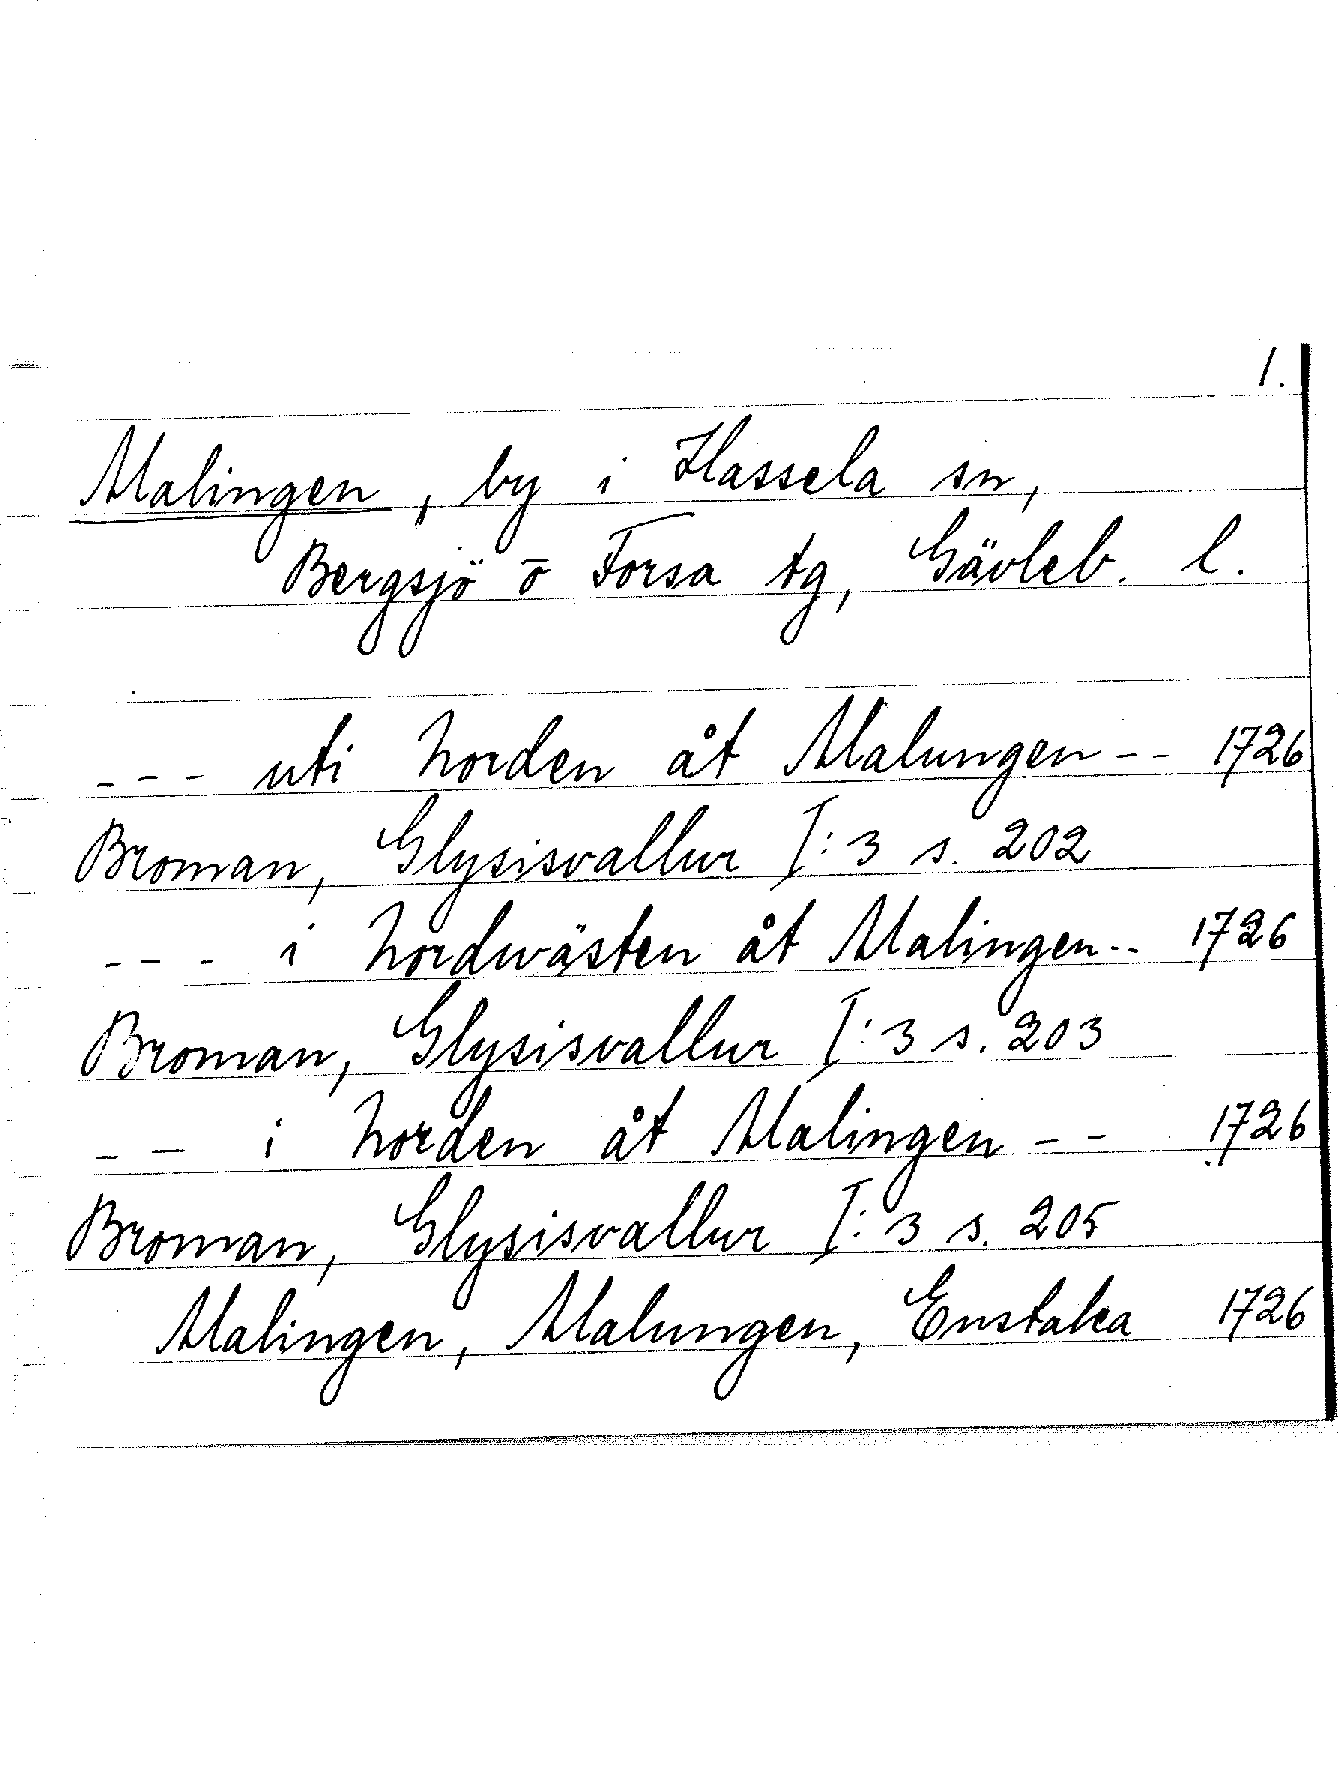 1.
Malingen, by i Hassela sn,
Bergsjö o Forsa tg, Gävleb. l.
--- uti Norden åt Malungen -- 1726
Broman, Glysisvallur I:3 s. 202
--- i Nordwästen åt Malingen -- 1726
Broman, Glysisvallur I:3 s. 203
-- i Norden åt Malingen -- 1726
Broman, Glysisvallur I:3 s. 205
Malingen, Malungen, Enstaka 1726